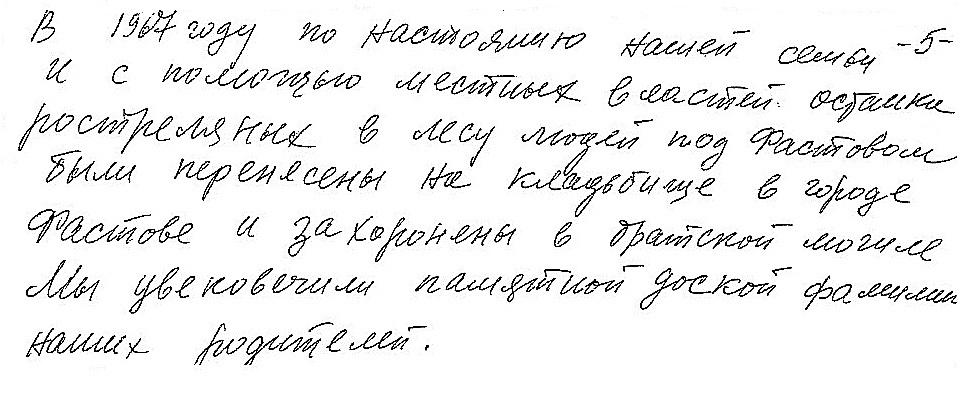 В 1967 году по настоянию нашей семьи -5-
и с помощью местных властей останки
ростреляных в лесу людей под Фастовом
были перенесены на кладьбище в городе
Фастове и захоронены в братской могиле
Мы увековечили памятной доской фамилии
наших родителей.